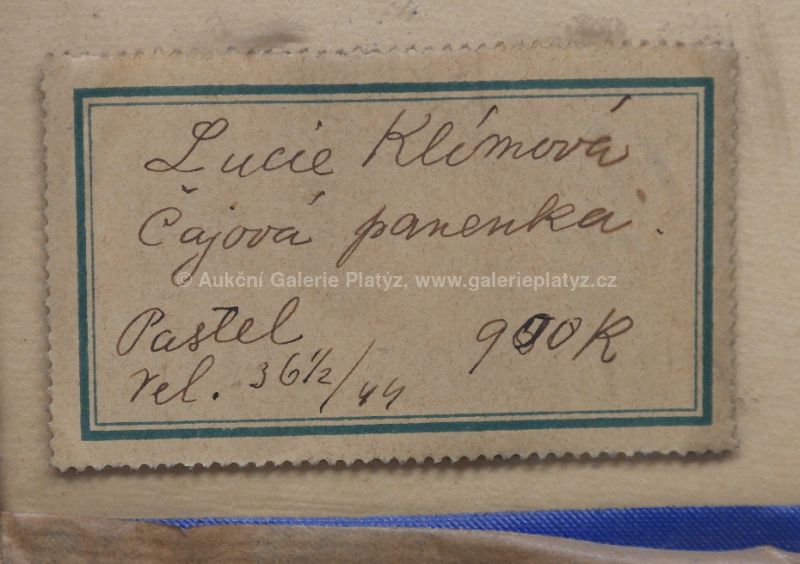 Lucie Klímová
Čajová panenka.
© Aukční Galerie Platýz, www.galerieplatyz.cz
Pastel 900K
Vel. 36 1/2/44